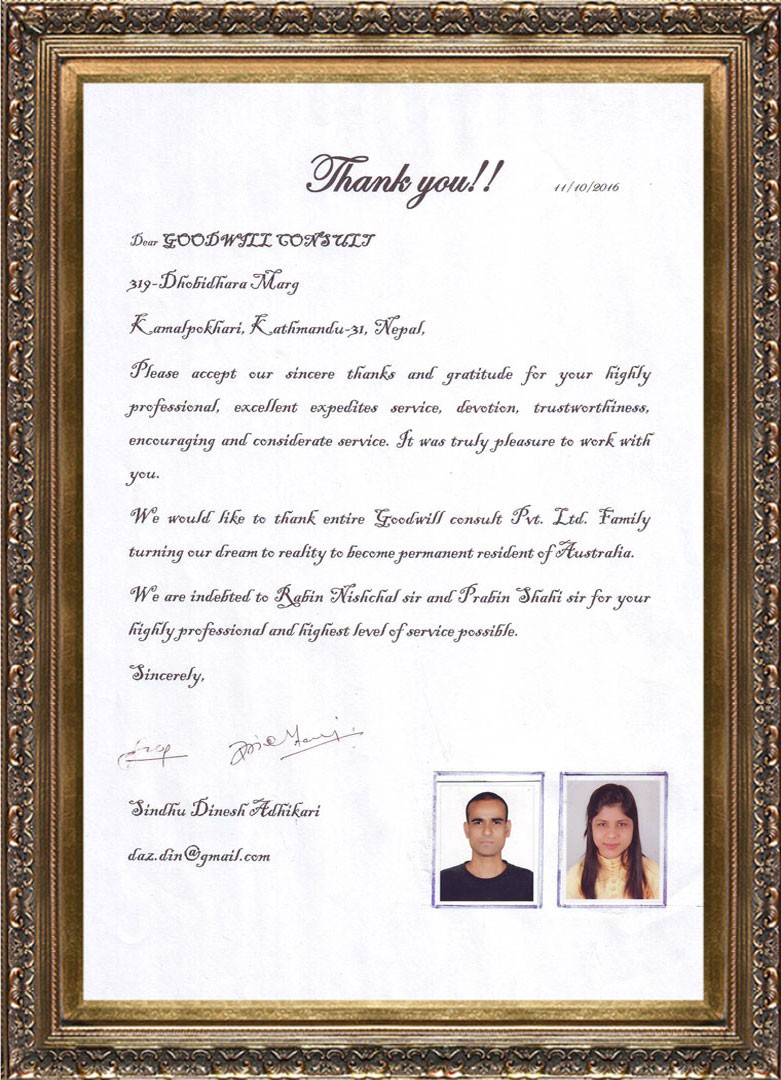 Thank you!!
11/10/2016
Dear GOODWILL CONSULT
319-Dhobidhara Marg
Kamalpokhari, Kathmandu-31, Nepal,
Please accept our sincere thanks and gratitude for your highly
professional, excellent expedites service, devotion, trustworthiness,
encouraging and considerate service. It was truly pleasure to work with
you.
We would like to thank entire Goodwill consult Pvt. Ltd. Family
turning our dream to reality to become permanent resident of Australia.
We are indebted to Rabin Nishchal sir and Prabin Shahi sir for your
highly professional and highest level of service possible.
Sincerely,
Sindhu Dinesh Adhikari
daz.din@gmail.com